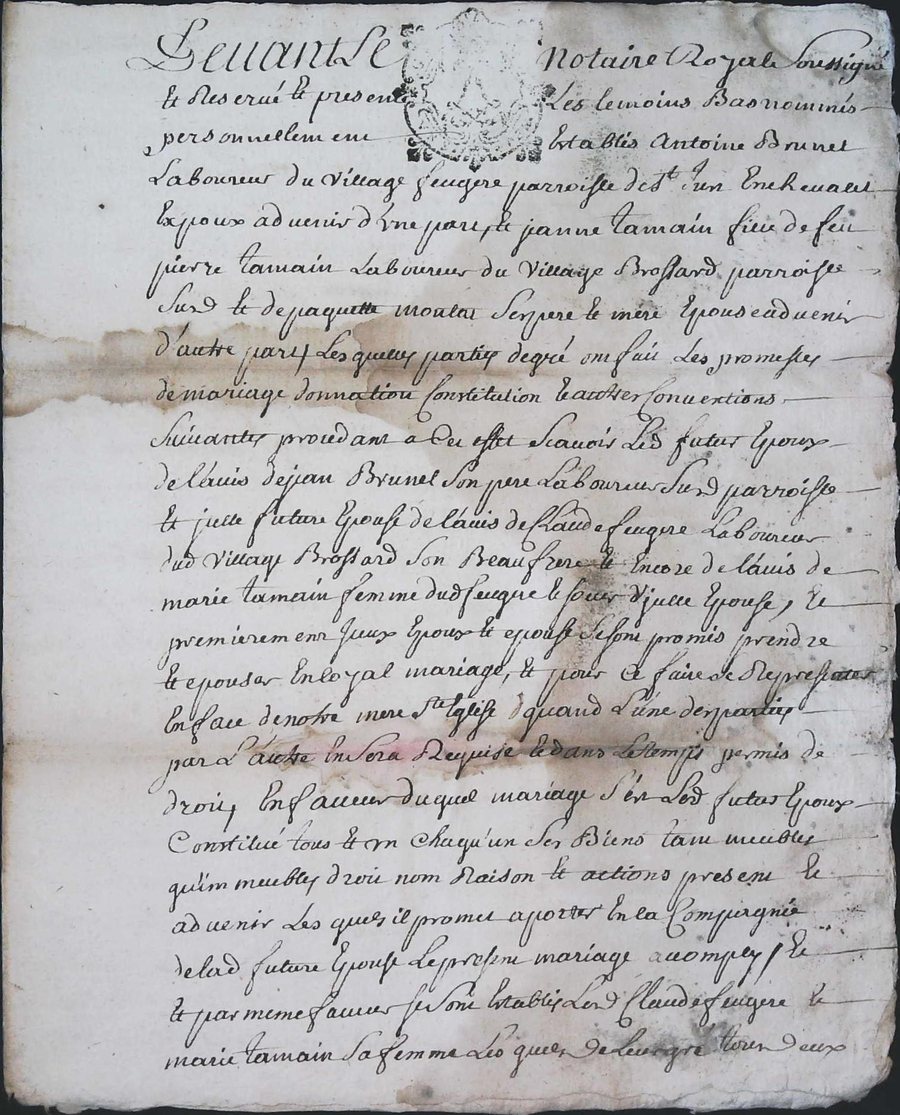 Devant Le Notaire Royale Soussigné
et Reservé et present Les temoins Bas nommés
personnellement Establis Antoine Brunel
Laboureur du Village feugere parroisse de St Jun Enchevalet
Expoux advenir d'Une part, et janne tamain fille de feu
pierre tamain Laboureur du Village Brossard parroisse
Susd et de paquette moulat Ses pere et mere Epouse advenir
d'autre part, Les quelles parties de gré ont fait Les promesses
de mariage donnation Constitution et autres Conventions
Suivantes procedant a Cet effet Scavoir Led futur Epoux
de l'avis de jean Brunel Son pere Laboureur Susd parroisse
et jcelle future Epouse de l'avis de Claude feugere Laboureur
dud Village Brossard Son Beaufrere et Encore de l'avis de
marie tamain femme dud feugere et soeur d'jcelle Epouse, Et
premierement jceux Epoux et epouse se sont promis prendre
et epouser En loyal mariage, et pour Ce faire se Representer
En face de notre mere Ste Eglise quand L'une des parties
par L'autre En sera Requise et dans Le temps permis de
droit, En faveur du quel mariage S'est Led futur Epoux
Constitué tous et Un Chaqu'un Ses Biens tant meubles
qu'immeubles droit nom Raison et actions present et
advenir Les quels il promet aporter En la Compagnie
de lad future Epouse Le present mariage acomply, Et
et par meme faveur se sont Establis Led Claude feugere et
marie tamain sa femme Les quels de Leur gré tous deux